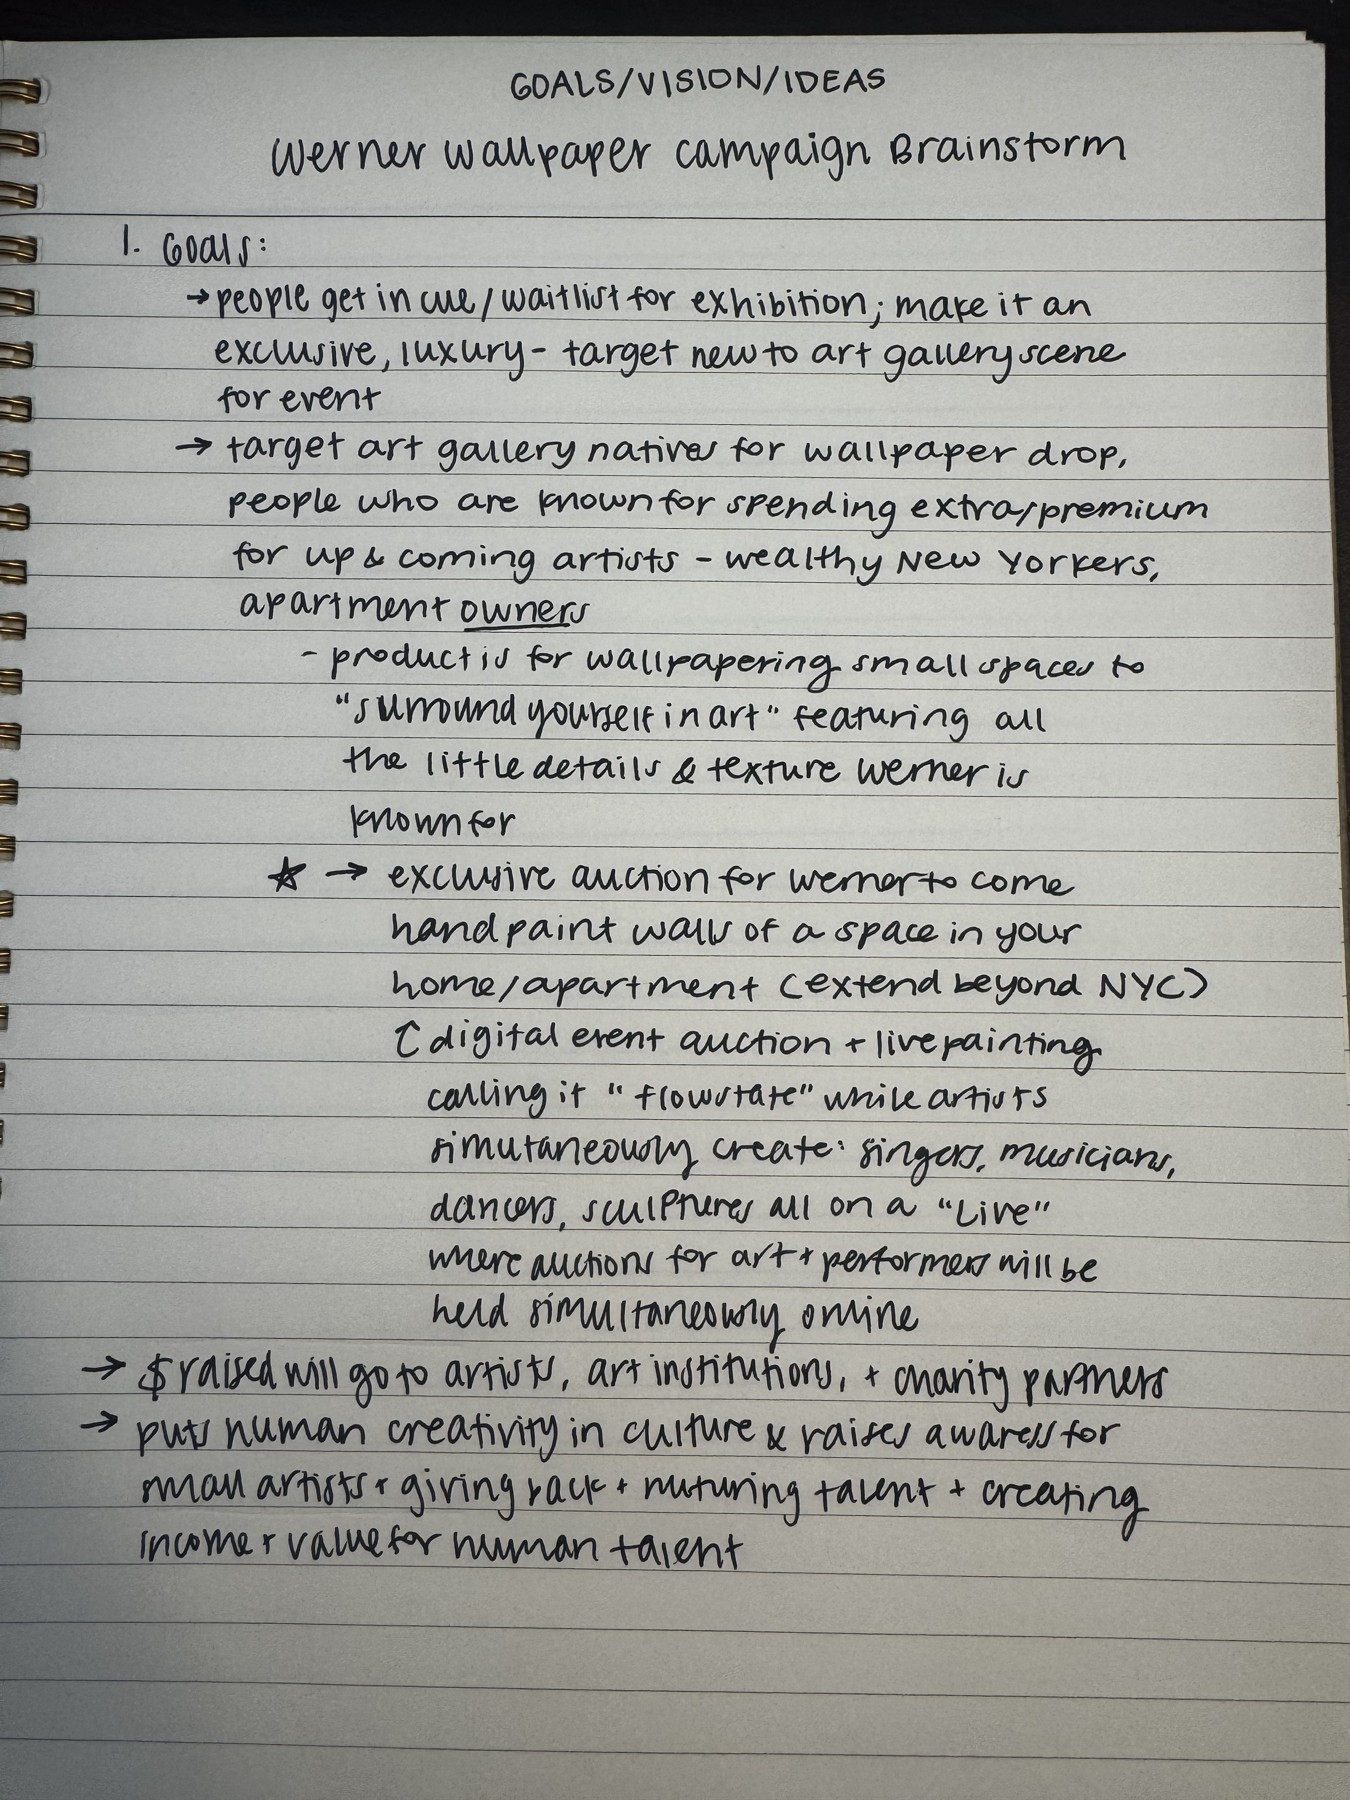 GOALS/VISION/IDEAS
Werner Wallpaper Campaign Brainstorm
1. Goals:
→ people get in cue/waitlist for exhibition; make it an
exclusive, luxury - target new to art gallery scene
for event
→ target art gallery natives for wallpaper drop,
people who are known for spending extra/premium
for up & coming artists - wealthy New Yorkers,
apartment owners
- product is for wallpapering small spaces to
"surround yourself in art" featuring all
the little details & texture Werner is
known for
☆ → exclusive auction for Werner to come
hand paint walls of a space in your
home/apartment (extend beyond NYC)
↑ digital event auction + live painting
calling it "flowstate" while artists
simutaneously create: singers, musicians,
dancers, sculptures all on a "Live"
where auctions for art + performers will be
held simultaneously online
→ $ raised will go to artists, art institutions, + charity partners
→ puts human creativity in culture & raises awaress for
small artists + giving back + nuturing talent + creating
income + value for human talent